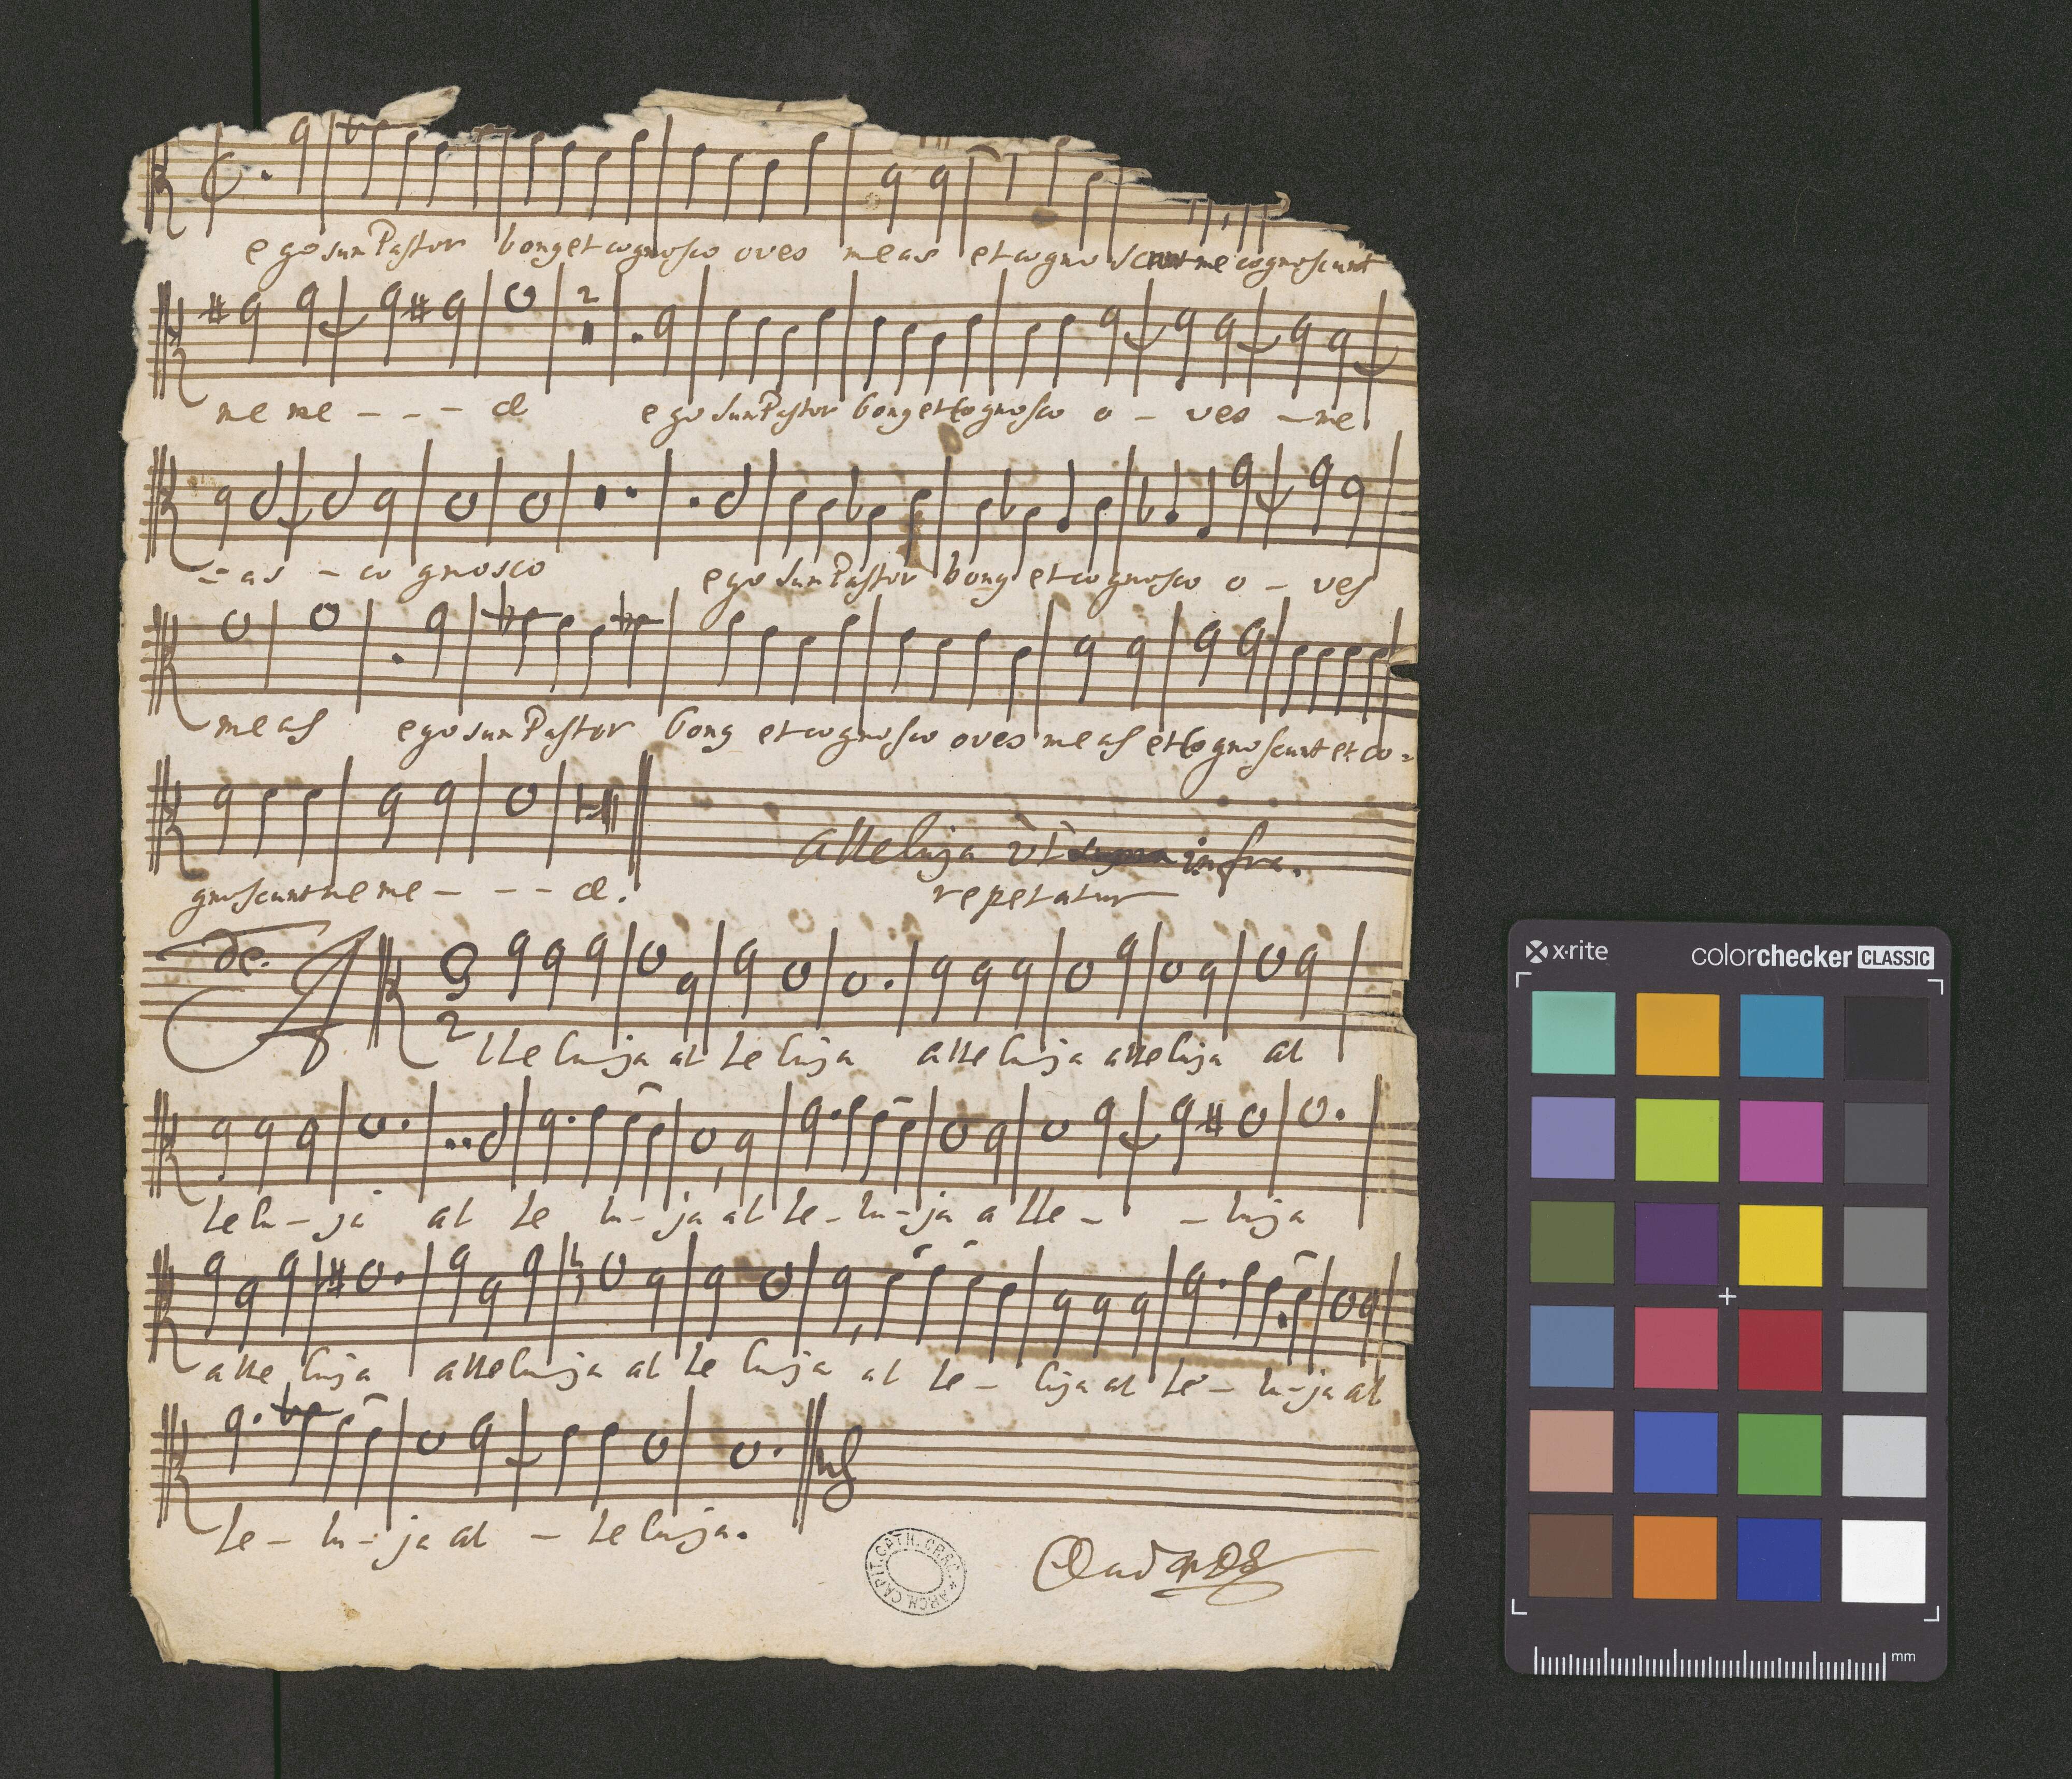 ego sun Pastor bong et cognosco oves meas et cogno me cognoscunt
me me - - - æ ego sun Pastor bong et Cognosco o - ves - me
- as - co gnosco ego sun Pastor bong et cognosco o - ves
meas ego sun Pastor bong et cognosco oves meas et Cognoscunt et co=
gnoscunt me me - - - æ.
alleluja ut infra.
repetatur
A
3
2
lleluja alleluja alleluja alleluja al
lelu - ja al le lu - ja al le - lu - ja a lle - - luja
alleluja alleluja al leluja al le - luja al le - lu - ja al
le - lu - ja al - leluja.
CAPIT. CATH. ARCH.
x·rite
colorchecker CLASSIC
mm